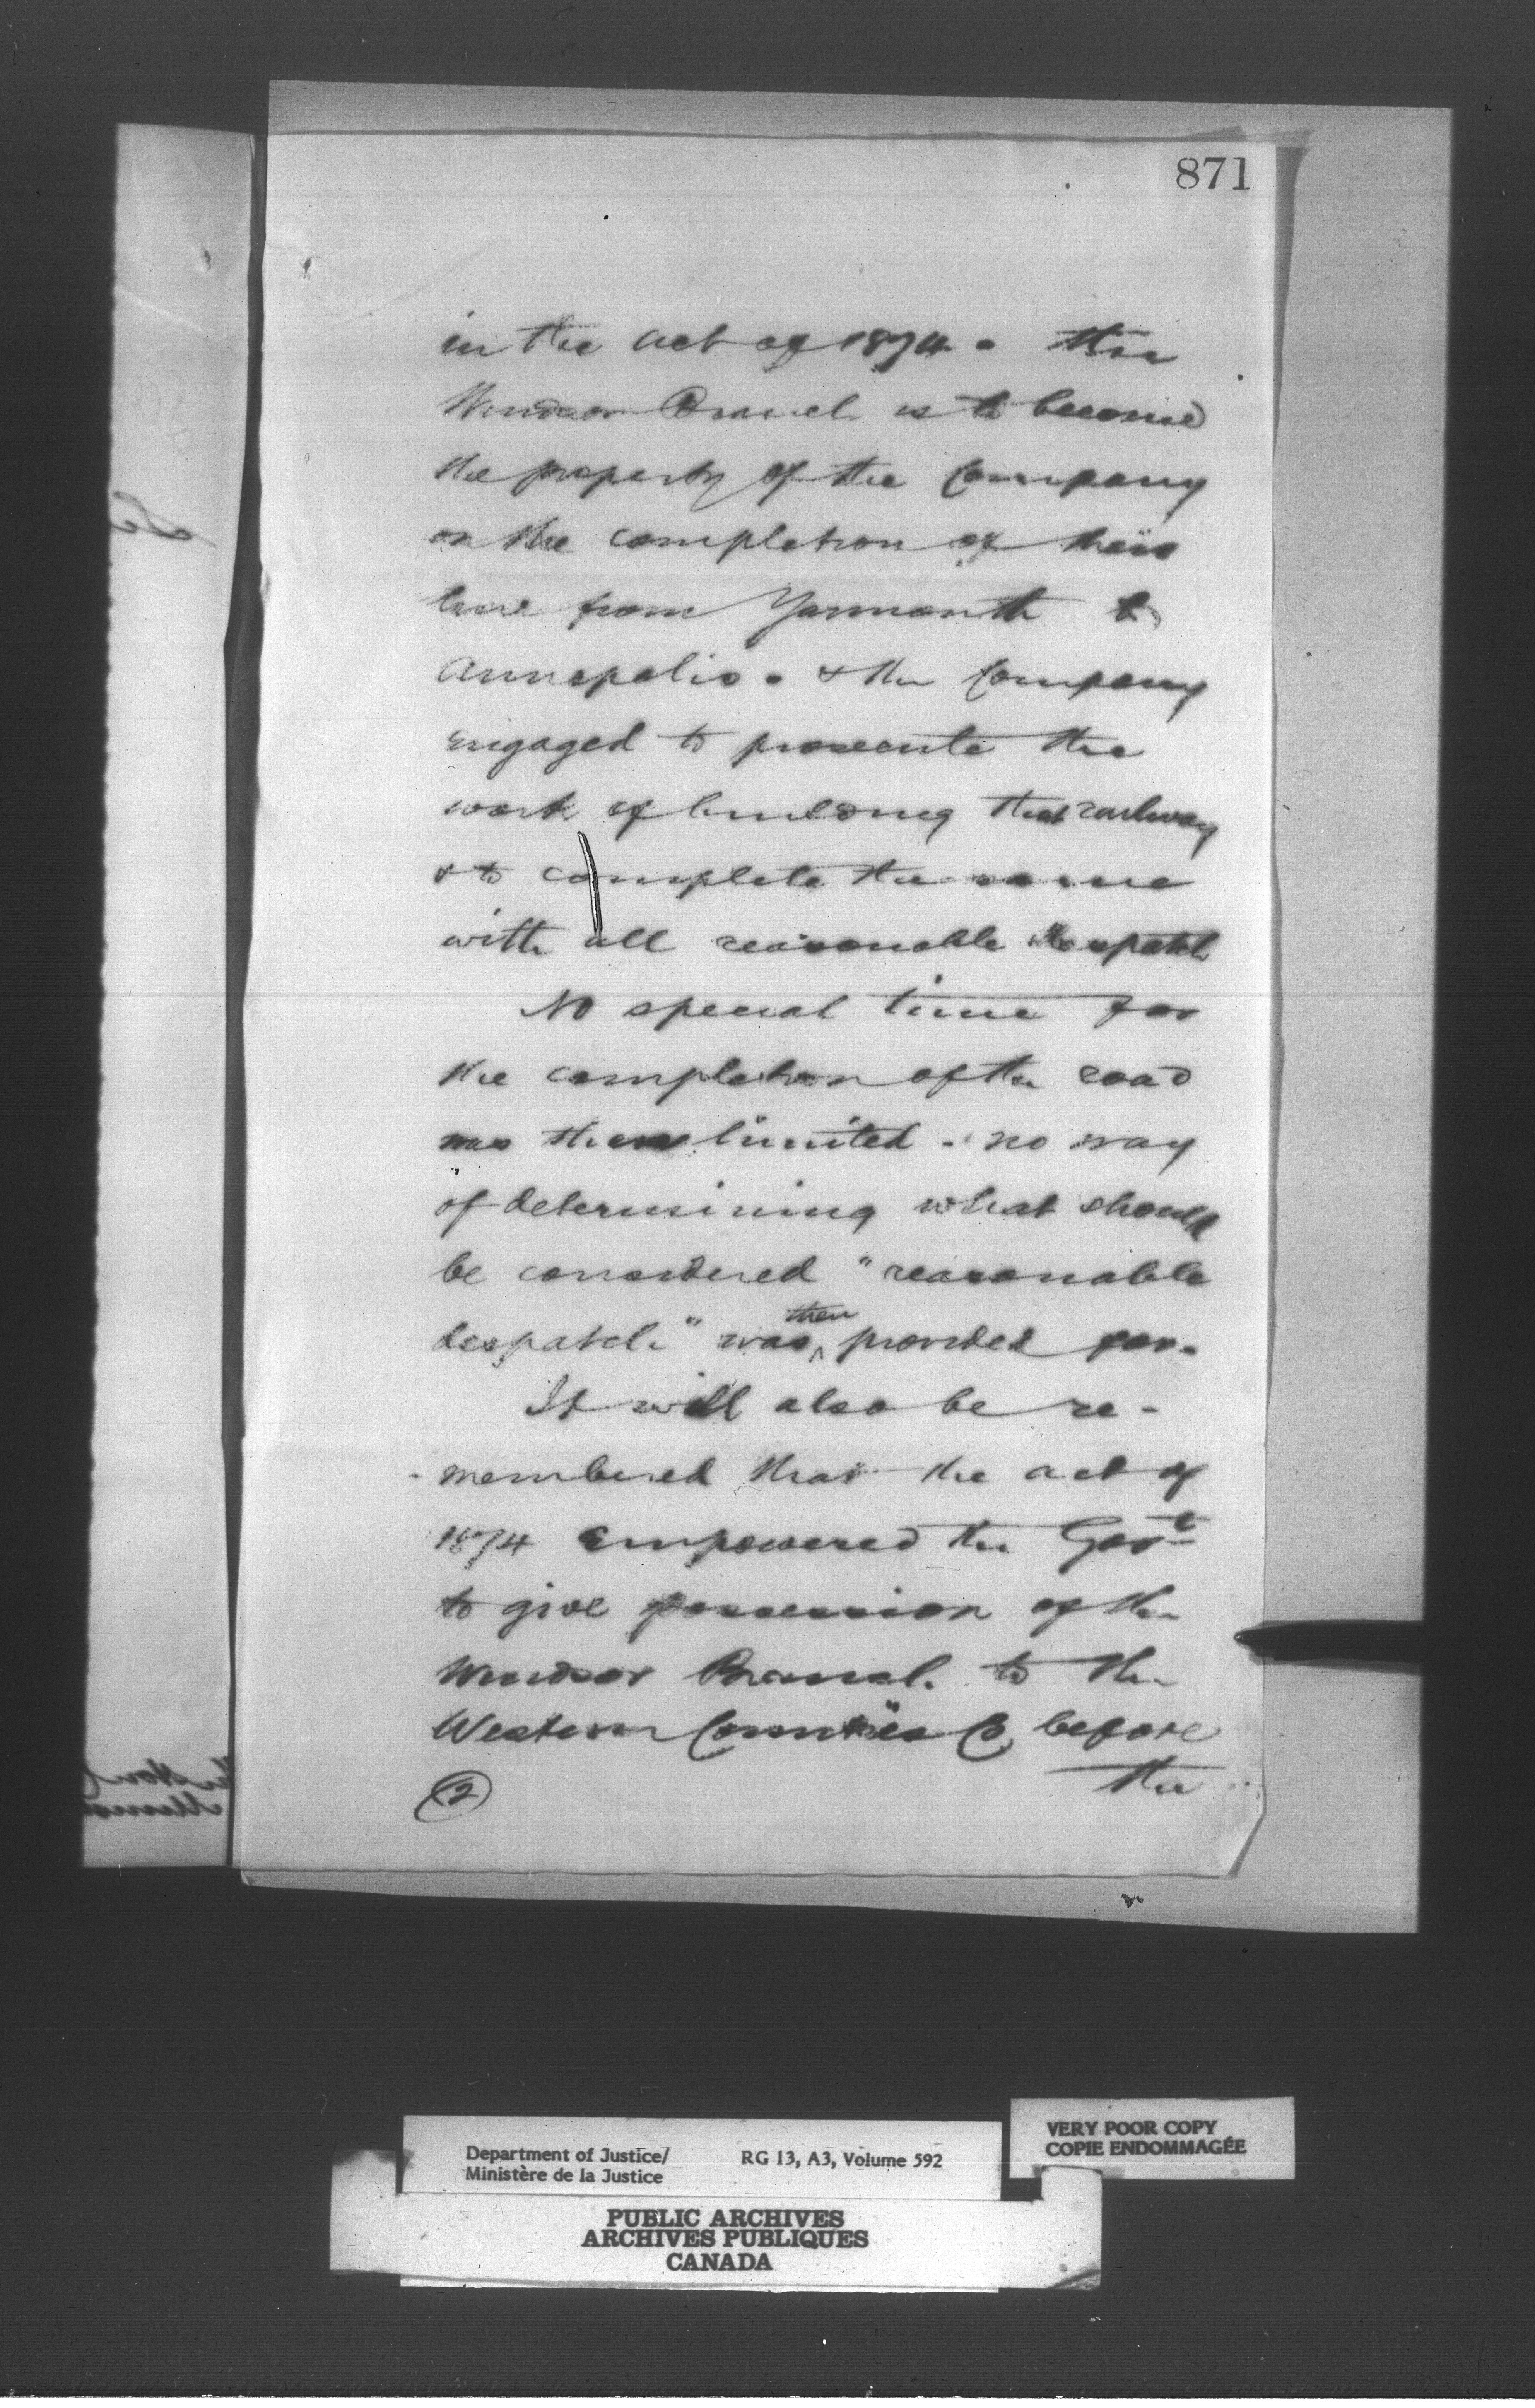 871
in the act of 1874. the
Windsor Branch is to become
the property of the Company
on the completion of their
line from Yarmouth to
Annapolis. & the Company
engaged to prosecute the
work of building that railway
& to complete the same
with all reasonable despatch
No special time for
the completion of the road
was then limited - no way
of determining what should
be considered "reasonable
despatch" was then provided for.
It will also be re-
-membered that the act of
1874 empowered the Govt
to give possession of the
Windsor Branch to the
Western Counties Co before
the
2
Department of Justice/
Ministère de la Justice
RG 13, A3, Volume 592
VERY POOR COPY
COPIE ENDOMMAGÉE
PUBLIC ARCHIVES
ARCHIVES PUBLIQUES
CANADA